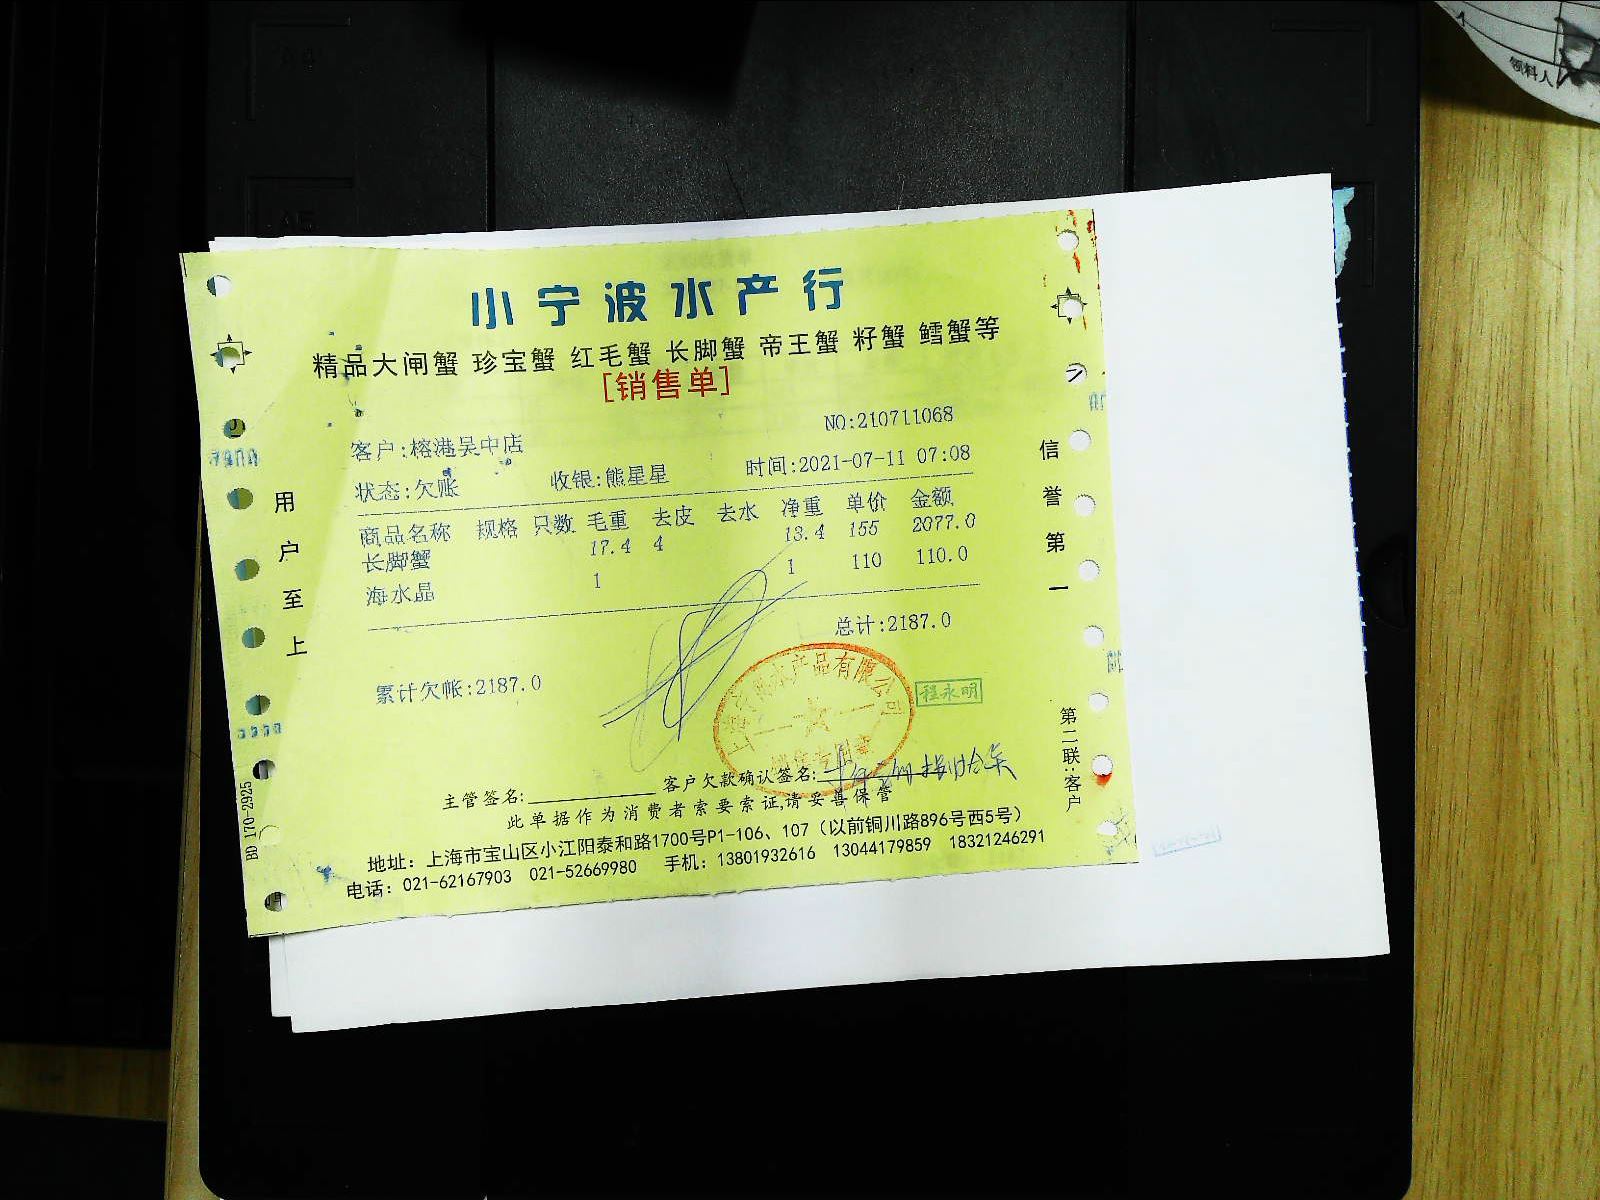 小宁波水产行
精品大闸蟹 珍宝蟹 红毛蟹 长脚蟹 帝王蟹 籽蟹 鳕蟹等
[销售单]
NO:210711068
客户:榕港吴中店
状态:欠账 收银:熊星星 时间:2021-07-11 07:08
商品名称 规格 只数 毛重 去皮 去水 净重 单价 金额
长脚蟹 17.4 4 13.4 155 2077.0
海水晶 1 1 110 110.0
总计:2187.0
累计欠帐:2187.0
程永明
主管签名: 客户欠款确认签名:
此单据作为消费者索要索证,请妥善保管
地址：上海市宝山区小江阳泰和路1700号P1-106、107（以前铜川路896号西5号）
电话：021-62167903 021-52669980 手机：13801932616 13044179859 18321246291
用户至上
信誉第一
第二联:客户
BD 170-2925
领料人